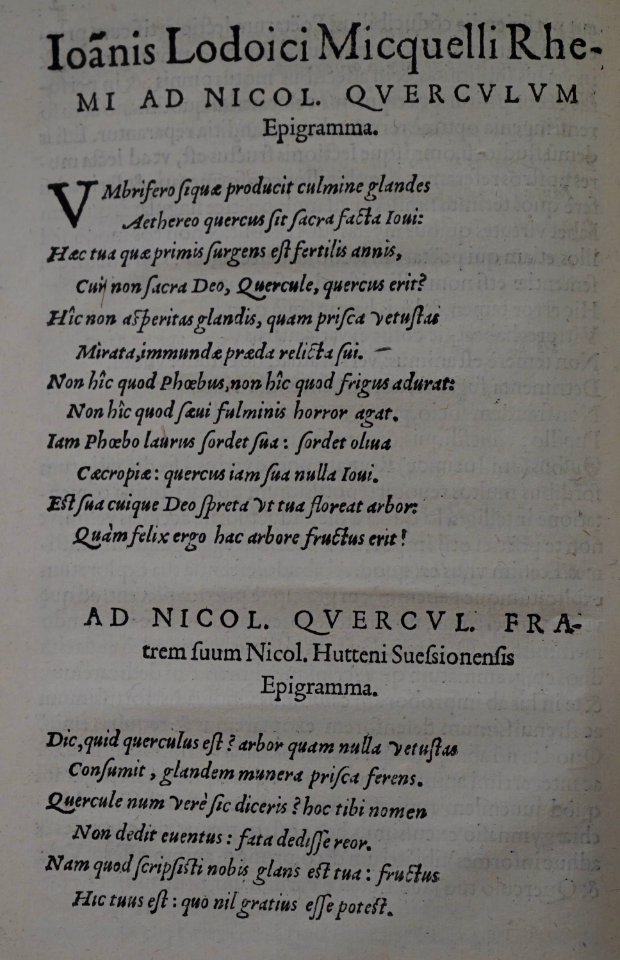 Ioãnis Lodoici Micquelli Rhe-
MI AD NICOL. QVERCVLVM
Epigramma.
VMbrifero siquæ producit culmine glandes
Aethereo quercus sit sacra facta Ioui:
Hæc tua quæ primis surgens est fertilis annis,
Cur non sacra Deo, Quercule, quercus erit?
Hîc non asperitas glandis, quam prisca vetustas
Mirata, immundæ præda relicta sui.
Non hîc quod Phœbus, non hîc quod frigus adurat:
Non hîc quod sæui fulminis horror agat.
Iam Phœbo laurus sordet sua: sordet oliua
Cæcropiæ: quercus iam sua nulla Ioui.
Est sua cuique Deo spreta vt tua floreat arbor:
Quàm felix ergo hac arbore fructus erit!
AD NICOL. QVERCVL. FRA-
trem suum Nicol. Hutteni Suessionensis
Epigramma.
Dic, quid querculus est? arbor quam nulla vetustas
Consumit, glandem munera prisca ferens.
Quercule num verè sic diceris? hoc tibi nomen
Non dedit euentus: fata dedisse reor.
Nam quod scripsisti nobis glans est tua: fructus
Hic tuus est: quo nil gratius esse potest.